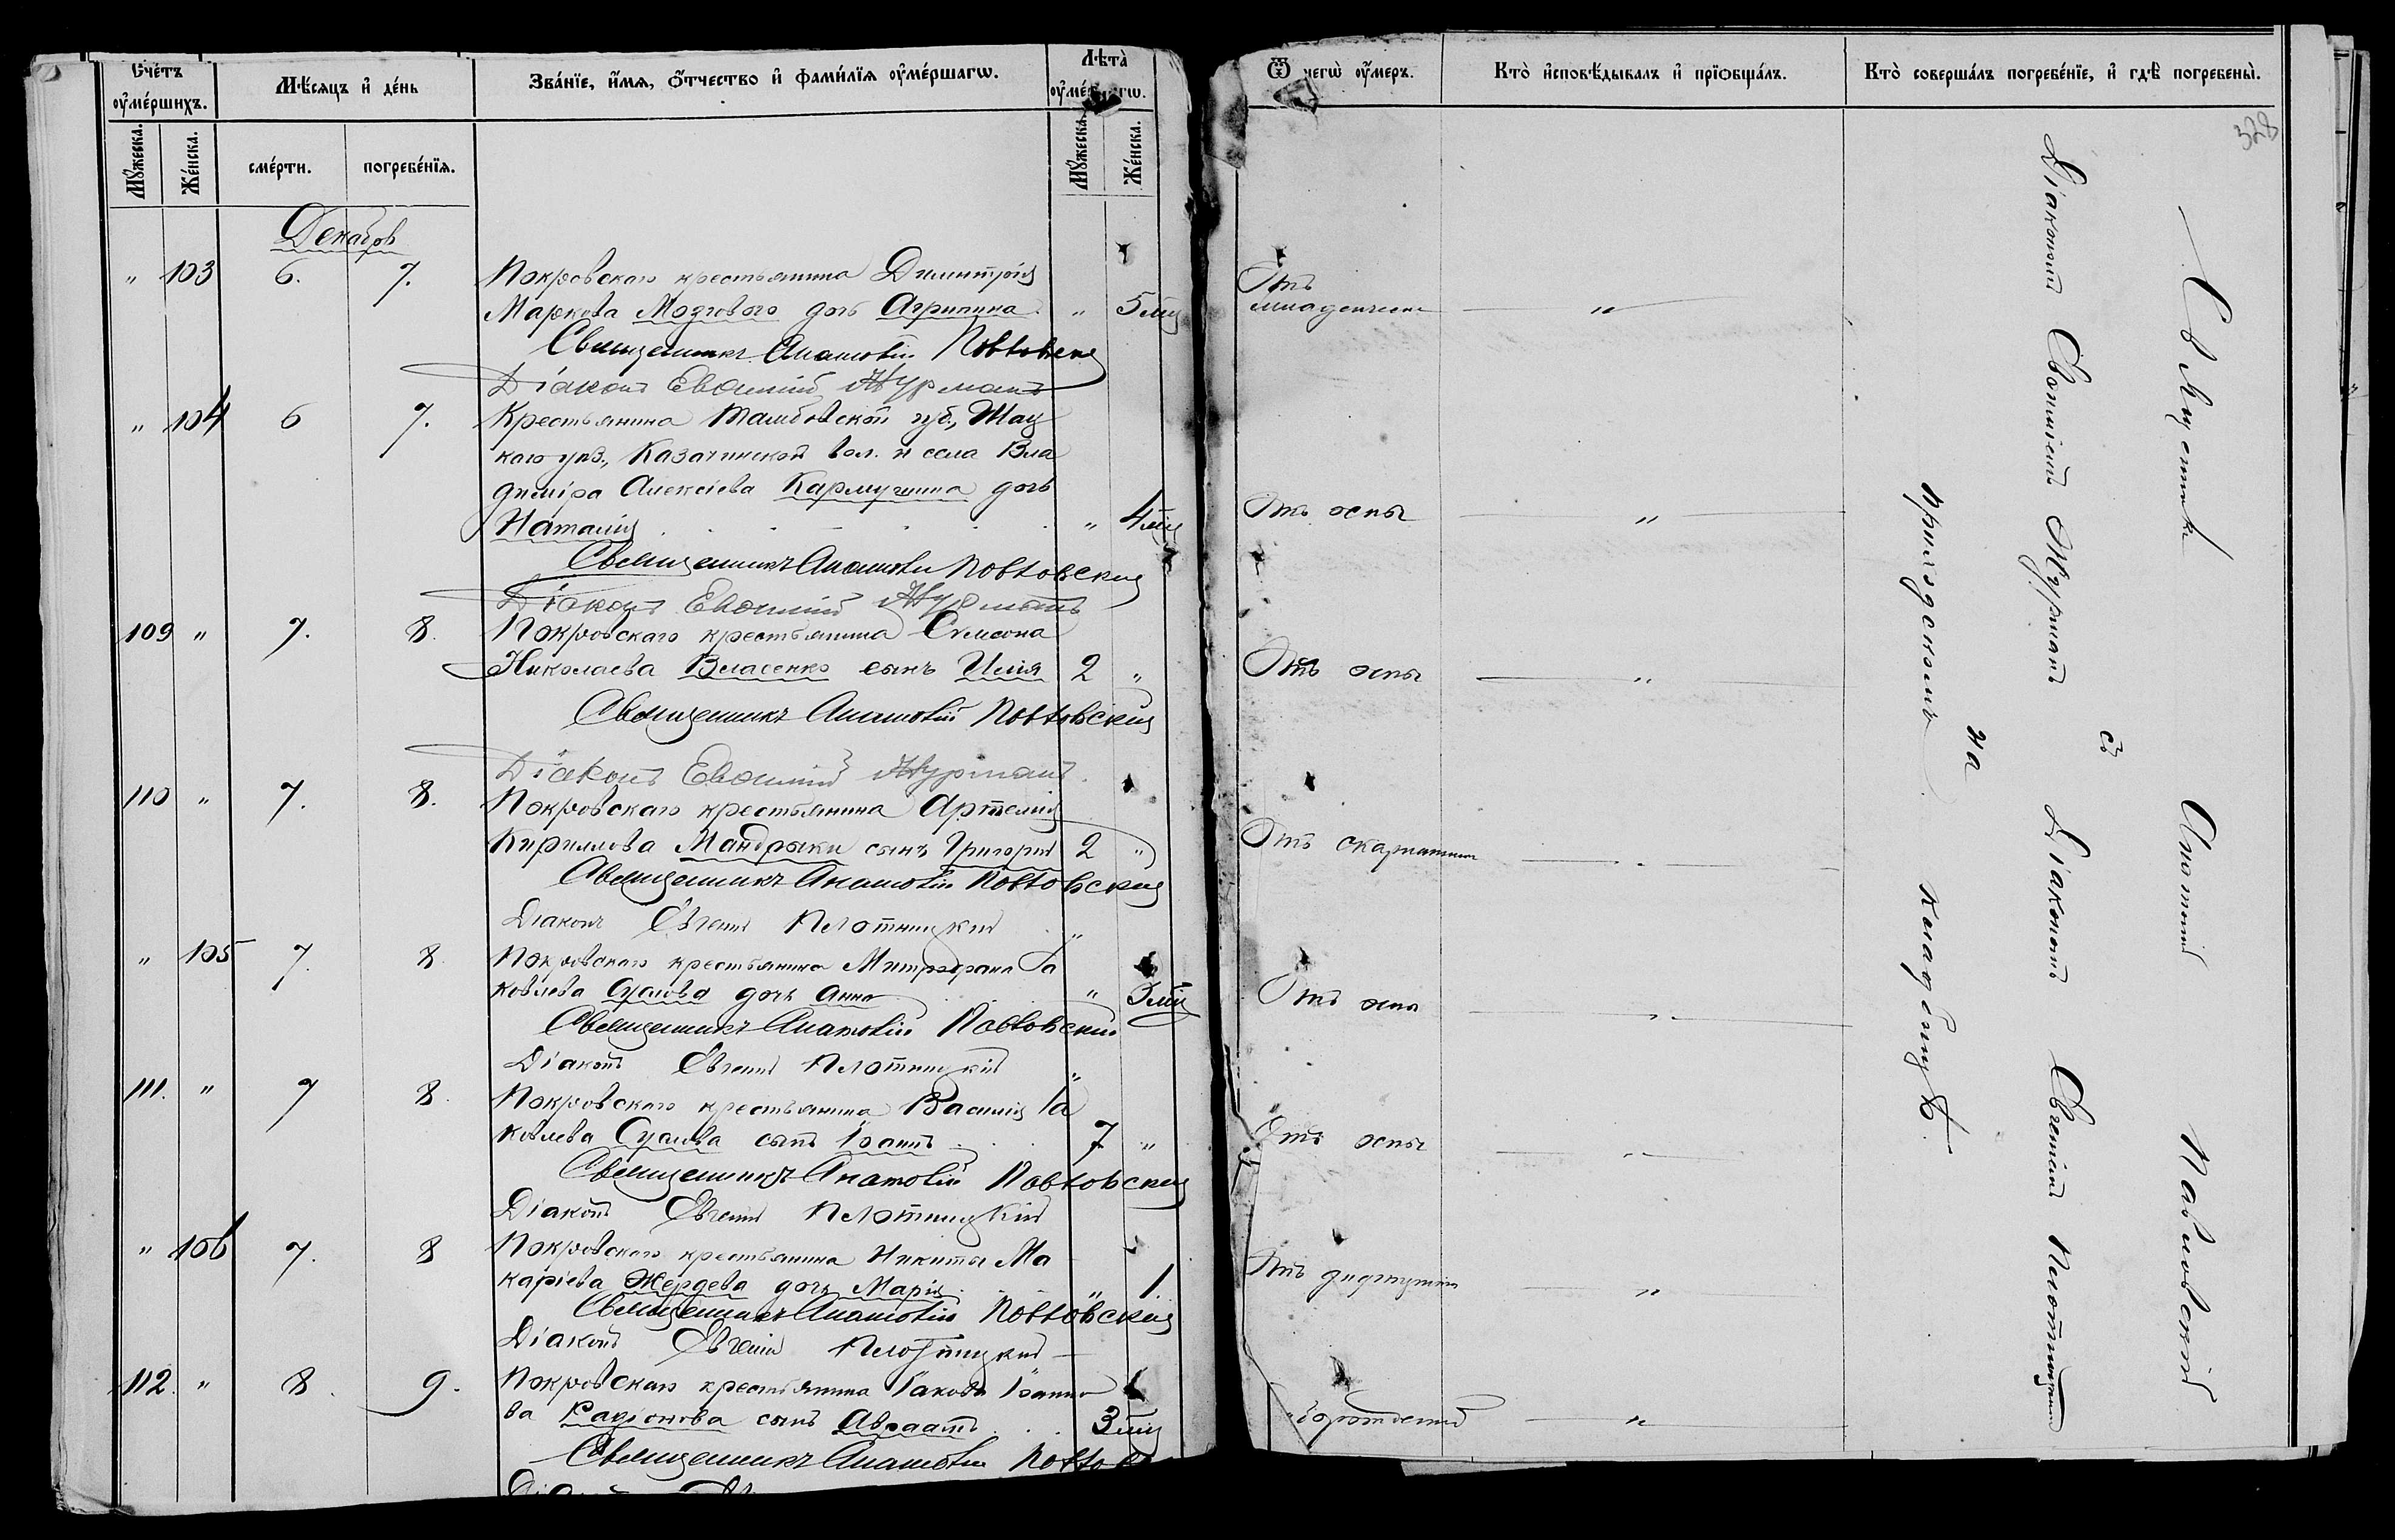 Счéтъ оумéршихъ.
Мѣсяцъ и дéнь
Звáнїе, имя, óтчество и фамилїя оумéршагω.
Лѣтà
Мужеска.
Жéнска.
смéрти.
погребéнїя.
Мужеска.
Жéнска.
Декабрь
" 103 6. 7. Покровскаго крестьянина Димитрія
Маркова Мозгового дочь Агрипина. " 5 мц
Священникъ Анатолій Павловскій
Діаконъ Евфимій Журманъ
" 104 6 7. Крестьянина Тамбовской губ., Шац
каго уѣз., Казачинской вол. и села Вла
диміра Алексіева Кармушина дочь
Наталія " 4 мц
Священникъ Анатолій Павловскій
Діаконъ Евфимій Журманъ
109 " 7. 8. Покровскаго крестьянина Сѵмеона
Николаева Власенко сынъ Илія 2 "
Священникъ Анатолій Павловскій
Діаконъ Евфимій Журманъ.
110 " 7. 8. Покровскаго крестьянина Артемія
Кириллова Мандрыки сынъ Григорій 2 "
Священникъ Анатолій Павловскій
Діаконъ Евгеній Пелотницкій
" 105 7. 8. Покровскаго крестьянина Митрофана Іа
ковлева Суслова дочь Анна " 3 мц
Священникъ Анатолій Павловскій
Діаконъ Евгеній Пелотницкій
111. " 7 8. Покровскаго крестьянина Василія Іа
ковлева Суслова сынъ Іоаннъ 7 "
Священникъ Анатолій Павловскій
Діаконъ Евгеній Пелотницкій
" 106 7. 8 Покровскаго крестьянина Никиты Ма
каріева Жердева дочь Марія. " 1
Священникъ Анатолій Павловскій
Діаконъ Евгеній Пелотницкій
112. " 8. 9. Покровскаго крестьянина Іакова Іоанно
ва Радіонова сынъ Авраамъ 3 мц
Священникъ Анатолій
Ѿ чегω оумеръ.
Ктò исповѣдывалъ и прїѡбщáлъ.
Ктò совершáлъ погребéнїе, и гдѣ погребены̀.
328
Отъ
младенческ "
Отъ оспы "
Отъ оспы "
Отъ скарлатины "
Отъ оспы "
Отъ оспы "
Отъ дифтерита "
"
Священникъ Анатолій Павловскій
съ
Діакономъ Евфиміемъ Журманъ Діакономъ Евгеніемъ Пелотницкимъ
на
приходскомъ кладбищѣ.